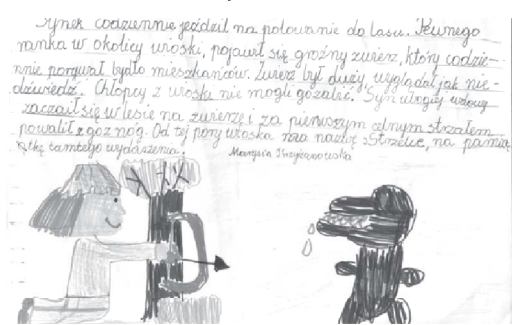 synek codziennie jeździł na polowanie do lasu. Pewnego
ranka w okolicy wioski, pojawił się groźny zwierz, który codzie-
nnie porywał bydło mieszkańców. Zwierz był duży, wyglądał jak nie-
dźwiedź. Chłopcy z wioski nie mogli go zabić. Syn ubogiej wdowy
zaczaił się w lesie na zwierzę i za pierwszym celnym strzałem
powalił go z nóg. Od tej pory wioska ma nazwę Strzelce, na pamią
tkę tamtego wydarzenia.
Marysia